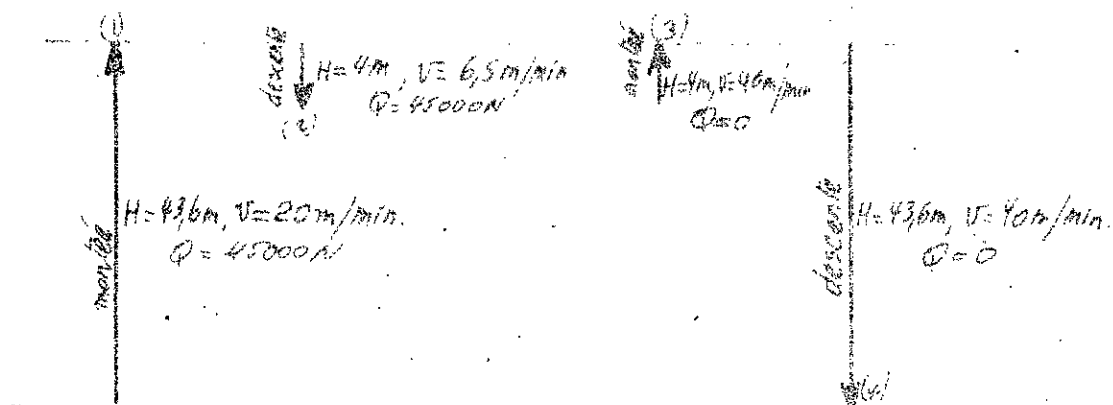 (1)
montée
H=43,6m, V=20m/min.
Q=45000N
descente
H=4m, V=6,5m/min
Q=45000N
(2)
(3)
montée
H=4m, V=46m/min
Q=0
descente
H=43,6m, V=40m/min.
Q=0
(4)